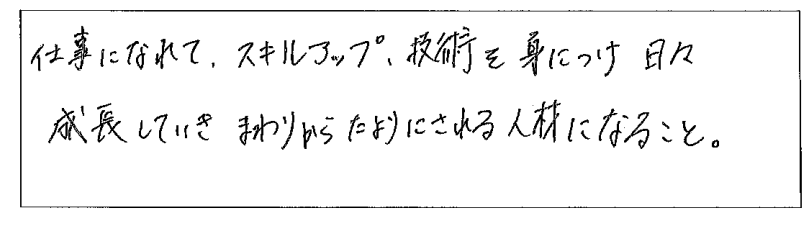 仕事になれて、スキルアップ、技術を身につけ 日々
成長していき まわりからたよりにされる人材になること。